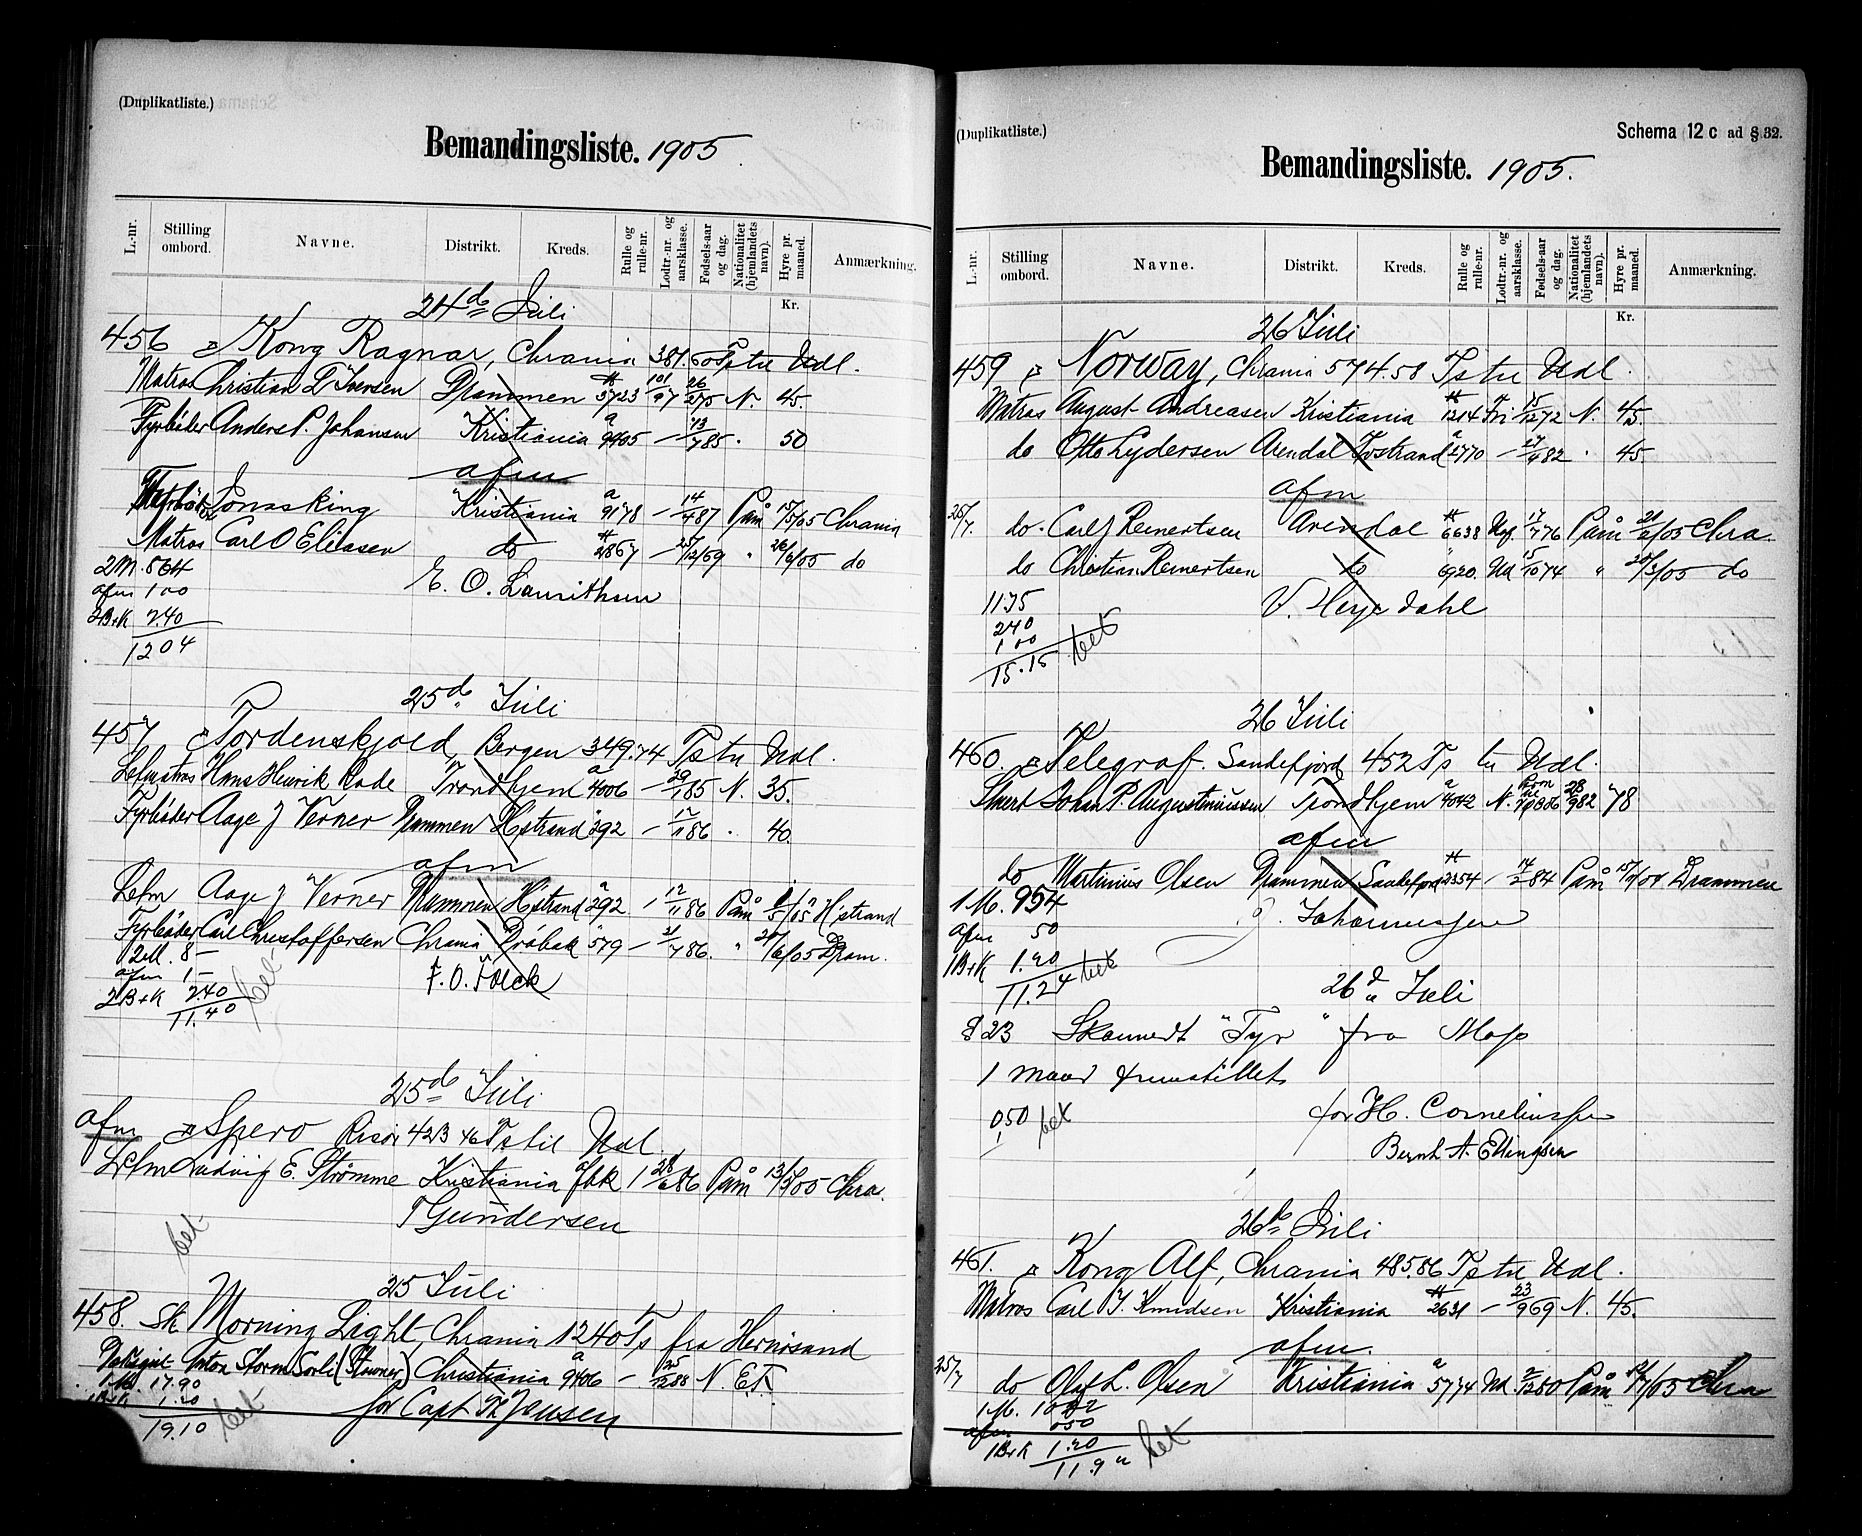 (Duplikatliste.)
Bemandingsliste. 1905
L.-nr. Stilling ombord. Navne. Distrikt. Kreds. Rulle og rulle-nr. Lodtr.-nr. og aarsklasse. Fødsels-aar og dag. Nationalitet (hjemlandets navn). Hyre pr. maaned. Anmærkning.
Kr.
24de Juli
456 Kong Ragnar, Chrania 381.50 Ts til Udl.
Matros Christian L Iversen Drammen 5723 101/97 26/2 75 N. 45.
Fyrbøder Anders P. Johansen Kristiania a 9405 — 13/7 85 . 50
afm
Fyrbøder Jonas King Kristiania a 9178 — 14/4 87 Påm 15/5 05 Chrania
Matros Carl O Eliasen do 2867 — 25/12 69 " 26/6 05 do
2 M. 864
afm 100
2B+K 2.40
1204
E. O. Laurithsen
25de Juli
457 Tordenskjold, Bergen 349.74 Ts til Udl.
Letmatros Hans Henrik Rode Trondhjem a 4006 — 29/1 85 N. 35.
Fyrbøder Aage J Verner Drammen H strand a 292 — 12/11 86 . 40.
afm
Letm Aage J Verner Drammen H strand a 292 — 12/11 86 Påm 1/5 05 H strand
Fyrbøder Carl Christoffersen Chrania Drøbak a 579 — 21/7 86. " 20/6 05 Dram.
2M. 8 —
afm 1 —
2B+K 2.40
11.40
bet
F. O. Folck
25de Juli
afm Spero Risør 423 46 Ts til Udl
Letm Ludvig E. Strømme Kristiania fbk 1 28/6 86 Påm 13/5 05 Chra.
T Gundersen
bet
25 Juli
458. Sk Morning Light, Chrania 1240 Ts fra Hernøsand
Dæksgut Anton Storm Sørli (Stuner) Christiania a 9406 — 25/12 88 N. E.F.
1 M. 17.90
1B+K 1.20
19.10
bet
for Capt Th Jensen
(Duplikatliste.)
Schema 12 c ad § 32.
Bemandingsliste. 1905.
L.-nr. Stilling ombord. Navne. Distrikt. Kreds. Rulle og rulle-nr. Lodtr.-nr. og aarsklasse. Fødsels-aar og dag. Nationalitet (hjemlandets navn). Hyre pr. maaned. Anmærkning.
Kr.
26 Juli
459 Norway, Chrania 574.58 Ts til Udl.
Matros August Andreasen Kristiania 1214 Fri 15/12 72 N. 45.
do Otto Lydersen Arendal Tostrand a 2770 — 27/6 82 . 45.
afm
25/7. do. Carl J Reinertsen Arendal 6638 Udf. 17/7 76 Påm 21/2 05 Chra.
do Christian Reinertsen do 6920. Ud 15/10 74 " 20/3 05 do
1175
240
100
15.15
bet
V. Heyerdahl
26 Juli
460. Telegraf. Sandefjord 452 Ts til Udl.
Stuert Johan P. Augustinussen Trondhjem a 4042 N. 70886 28/9 82 78
afm
do Martinius Olsen Drammen Sandefjord 2354 — 14/2 84 Påm 15/11 04 Drammen
1 M. 954
afm 50
1B+K 1.20
11.24
bet
Johannessen
26d Juli
§ 23 Skonnert "Tyr" fra Moss
1 mand fremstillet
050 bet
for H. Corneliussen
Bernh A. Ellingsen
26de Juli
461. Kong Alf, Chrania 485.86 Ts til Udl.
Matros Carl J. Knudsen Kristiania 2631 — 23/9 69 N. 45.
afm.
25/7 do Olaf L. Olsen Kristiania a 5774 Ud. 2/12 80 Påm 05 Chra
1 M. 1022
afm 050
1B+K 1.20
11.9
bet